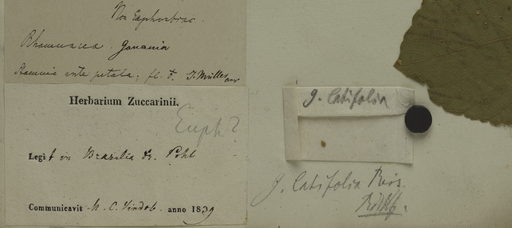 Non Euphorbiac.
Rhamnacea. Gouania
Stamina ante petala; fl. ♂. J. Müller
Herbarium Zuccarinii.
Euph?
Legit in Brasilia Dr. Pohl
Communicavit M. C. Vindob. anno 1839
g. latifolia
g. latifolia Reis.